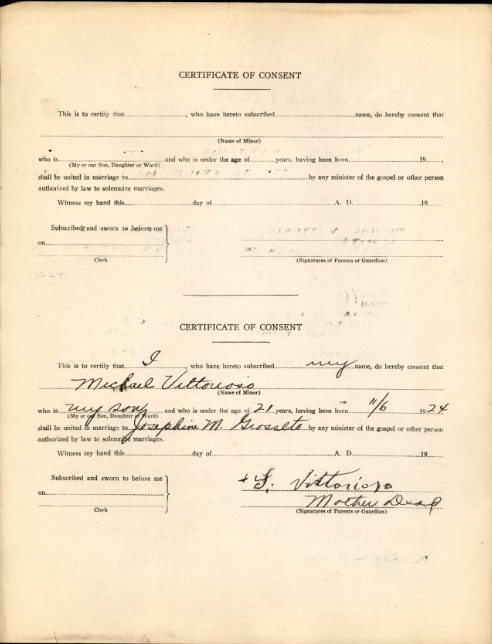 CERTIFICATE OF CONSENT
This is to certify that , who have hereto subscribed name, do hereby consent that
(Name of Minor)
who is and who is under the age of years, having been born 19
(My or our Son, Daughter or Ward)
shall be united in marriage to by any minister of the gospel or other person
authorized by law to solemnize marriages.
Witness my hand this day of A. D. 19
Subscribed and sworn to before me
on
Clerk
(Signatures of Parents or Guardian)
CERTIFICATE OF CONSENT
This is to certify that I , who have hereto subscribed my name, do hereby consent that
Michael Vittorioso
(Name of Minor)
who is my son and who is under the age of 21 years, having been born 11/6 1924
(My or our Son, Daughter or Ward)
shall be united in marriage to Josephine M. Grosseto by any minister of the gospel or other person
authorized by law to solemnize marriages.
Witness my hand this day of A. D. 19
Subscribed and sworn to before me
on
Clerk
Vittorioso
Mother Dead
(Signatures of Parents or Guardian)